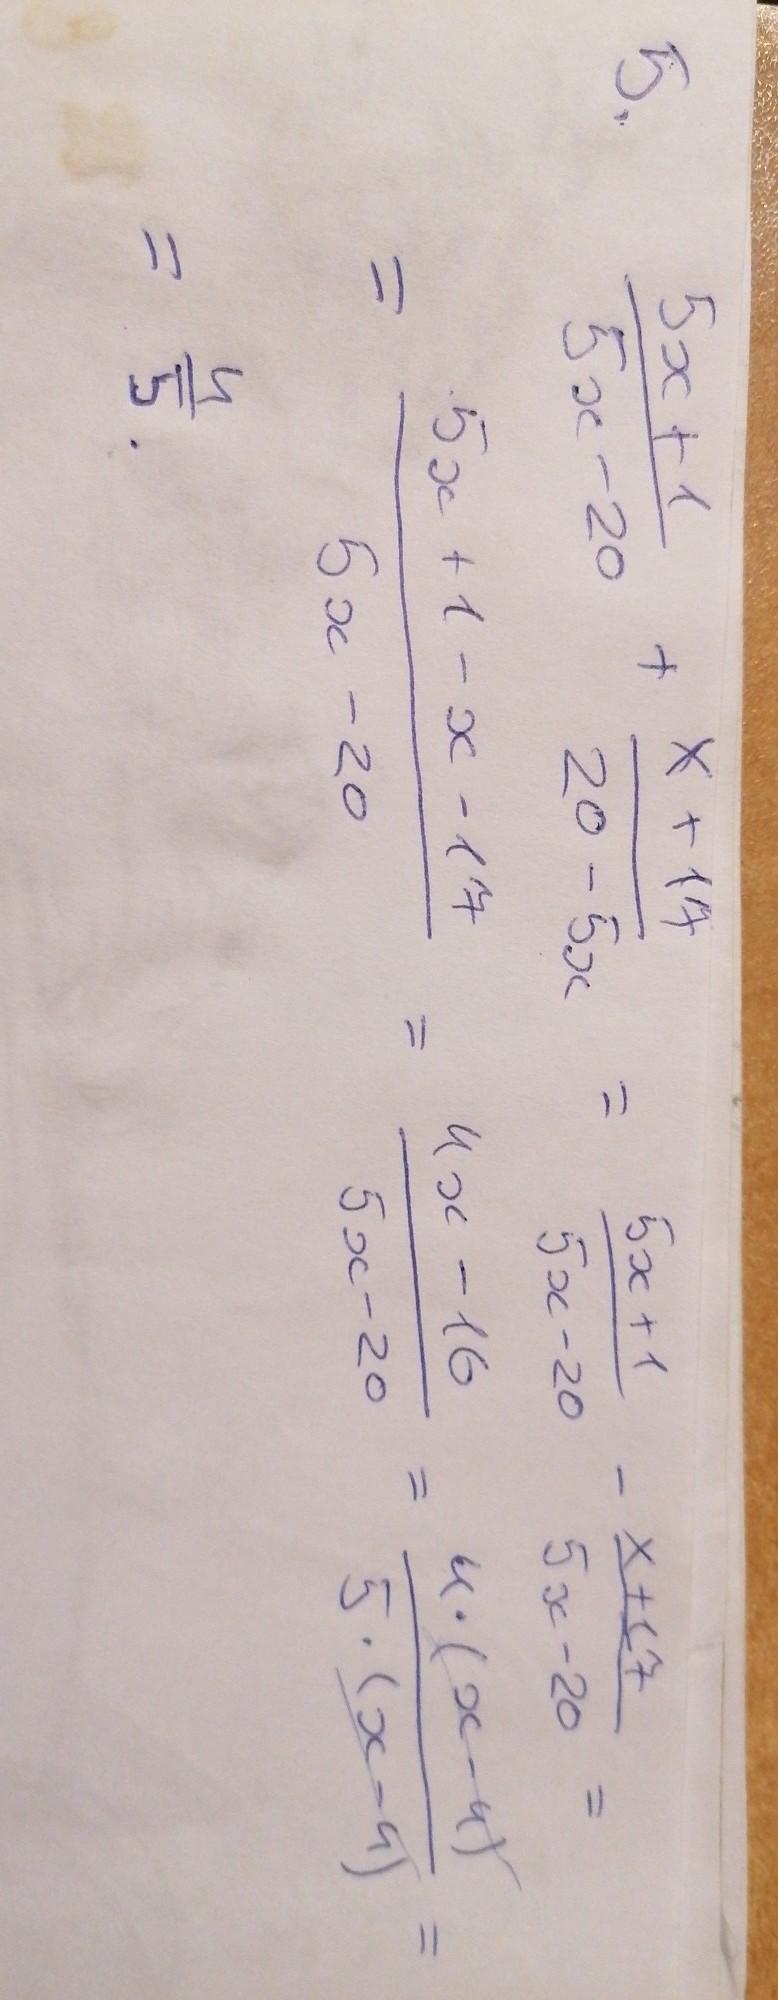 5. (5x+1)/(5x-20) + (x+17)/(20-5x) = (5x+1)/(5x-20) - (x+17)/(5x-20) =
= (5x+1-x-17)/(5x-20) = (4x-16)/(5x-20) = (4·(x-4))/(5·(x-4)) =
= 4/5.